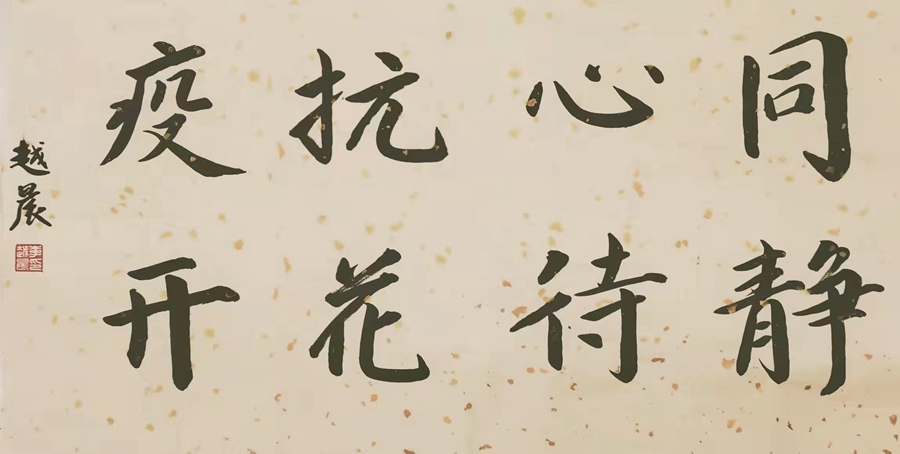 同心抗疫
静待花开
越晨